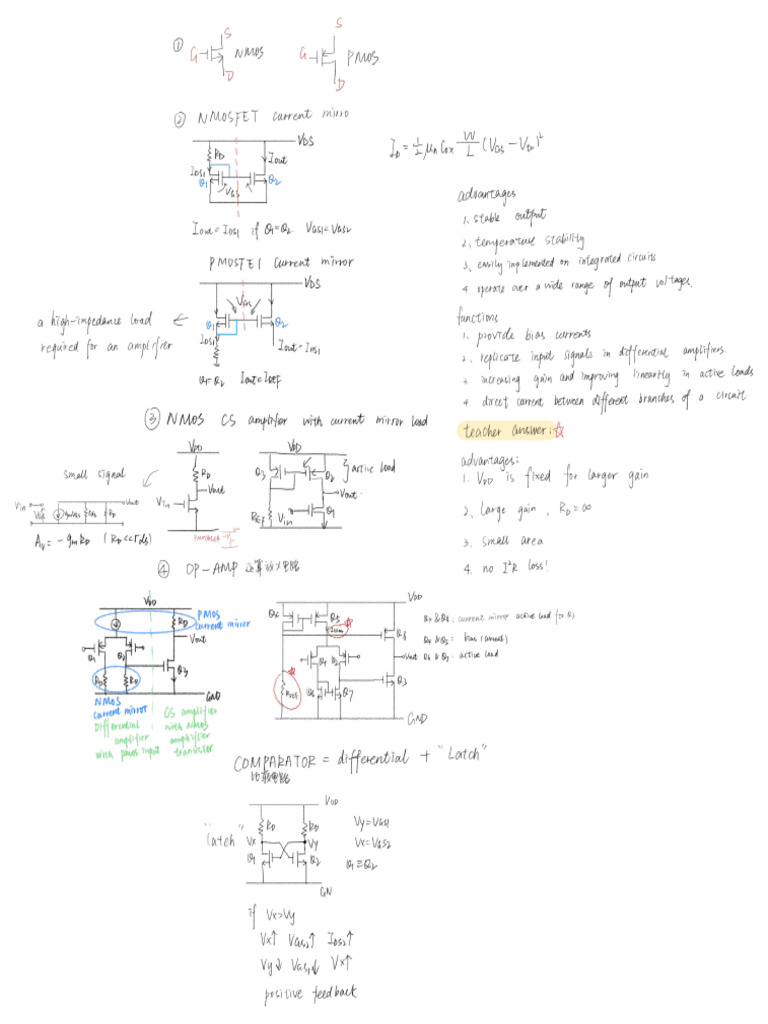 ①
S
G
NMOS
D
S
G
PMOS.
D
② NMOSFET current mirro
VDS
RD
Iout
IDS1
Q1
VGS
Q2
Iout = IDS1 if Q1=Q2 VGS1=VGS2
ID = 1/2 μn Cox W/L (VGS - Vtn)²
advantages
1、stable output
2、temperature stability
3、easily implemented on integrated circuits
4. operate over a wide range of output voltages.
functions
1. provide bias currents
2、replicate input signals in differential amplifiers
3 increasing gain and improving linearity in active loads
4. direct current between different branches of a circuit
teacher answer:☆
advantages:
1. VDD is fixed for larger gain
2、Large gain , RD = ∞
3. small area
4. no I²R loss!
PMOSFET current mirror
VDS
VGS
Q1
Q2
IDS1
Iout = IDS1
Q1=Q2 Iout=IREF
a high-impedance load
required for an amplifier
③ NMOS CS amplifier with current mirror load
small signal
Vin
Vout
RD
Av = -gmRD (RD<<rds)
VDD
RD
Vout
Vin
VDD
Q3
Q2
active load
Vout
REF
Vin
Q1
④ OP-AMP 运算放大电路
VDD
RD
PMOS
current mirror
Vout
Q1
Q2
Q3
RD
RD
GND
NMOS
current mirror
Differential
amplifier
with pmos input
CS amplifier
with NMOS
amplifier
transistor
VDD
Q6
Q5
Q8
Q1
Q2
Vout
Rref
Q7
Q3
GND
current mirror active load for Q1
bias (current)
active load
COMPARATOR = differential + "Latch"
比较电路
"latch"
VDD
RD
RD
Vx
Vy
Q1
Q2
GN
Vy=VGS1
Vx=VGS2
Q1≡Q2
if Vx>Vy
Vx↑ VGS2↑ IDS2↑
Vy↓ VGS1↓ Vx↑
positive feedback